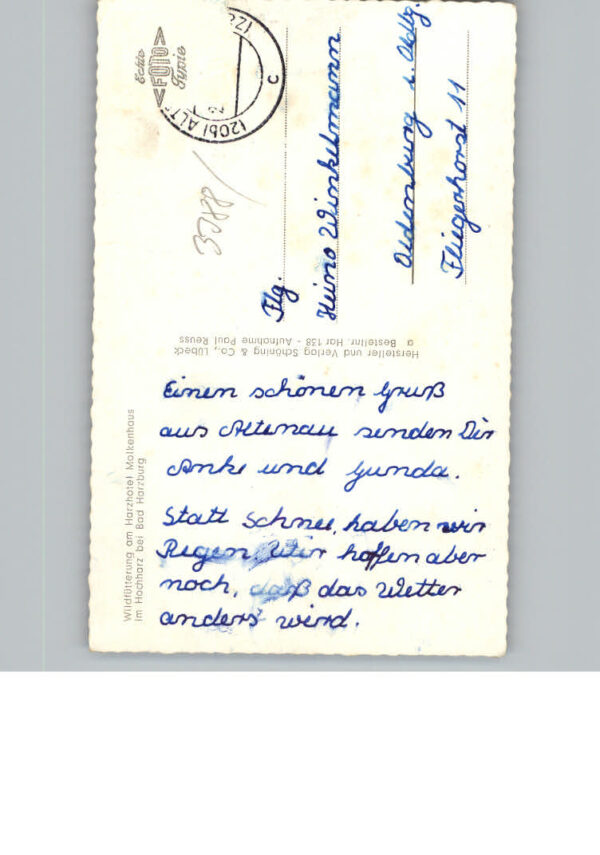 Echte
FOTO
Typie
(20b) ALT
c
3788/
Flg.
Heino Winkelmann
Oldenburg i. Oldbg.
Fliegerhorst 11
Hersteller und Verlag Schöning & Co., Lübeck
a Bestellnr. Har 138 - Aufnahme Paul Reuss
Einen schönen Gruß
aus Altenau senden Dir
Anke und Gunda.
Statt Schnee, haben wir
Regen. Wir hoffen aber
noch, daß das Wetter
anders wird.
Wildfütterung am Harzhotel Molkenhaus
im Hochharz bei Bad Harzburg